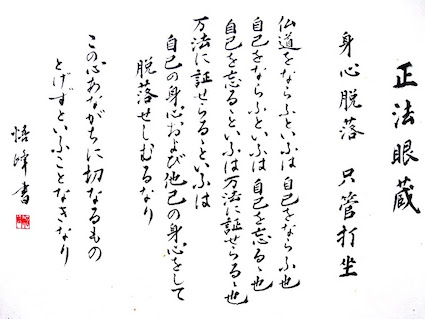 正法眼蔵
身心脱落 只管打坐
仏道をならふといふは 自己をならふ也
自己をならふといふは 自己を忘るゝ也
自己を忘るゝといふは万法に証せらるゝ也
万法に証せらるゝといふは
自己の身心および他己の身心をして
脱落せしむるなり
この心あながちに切なるもの
とげずといふことなきなり
悟峰書